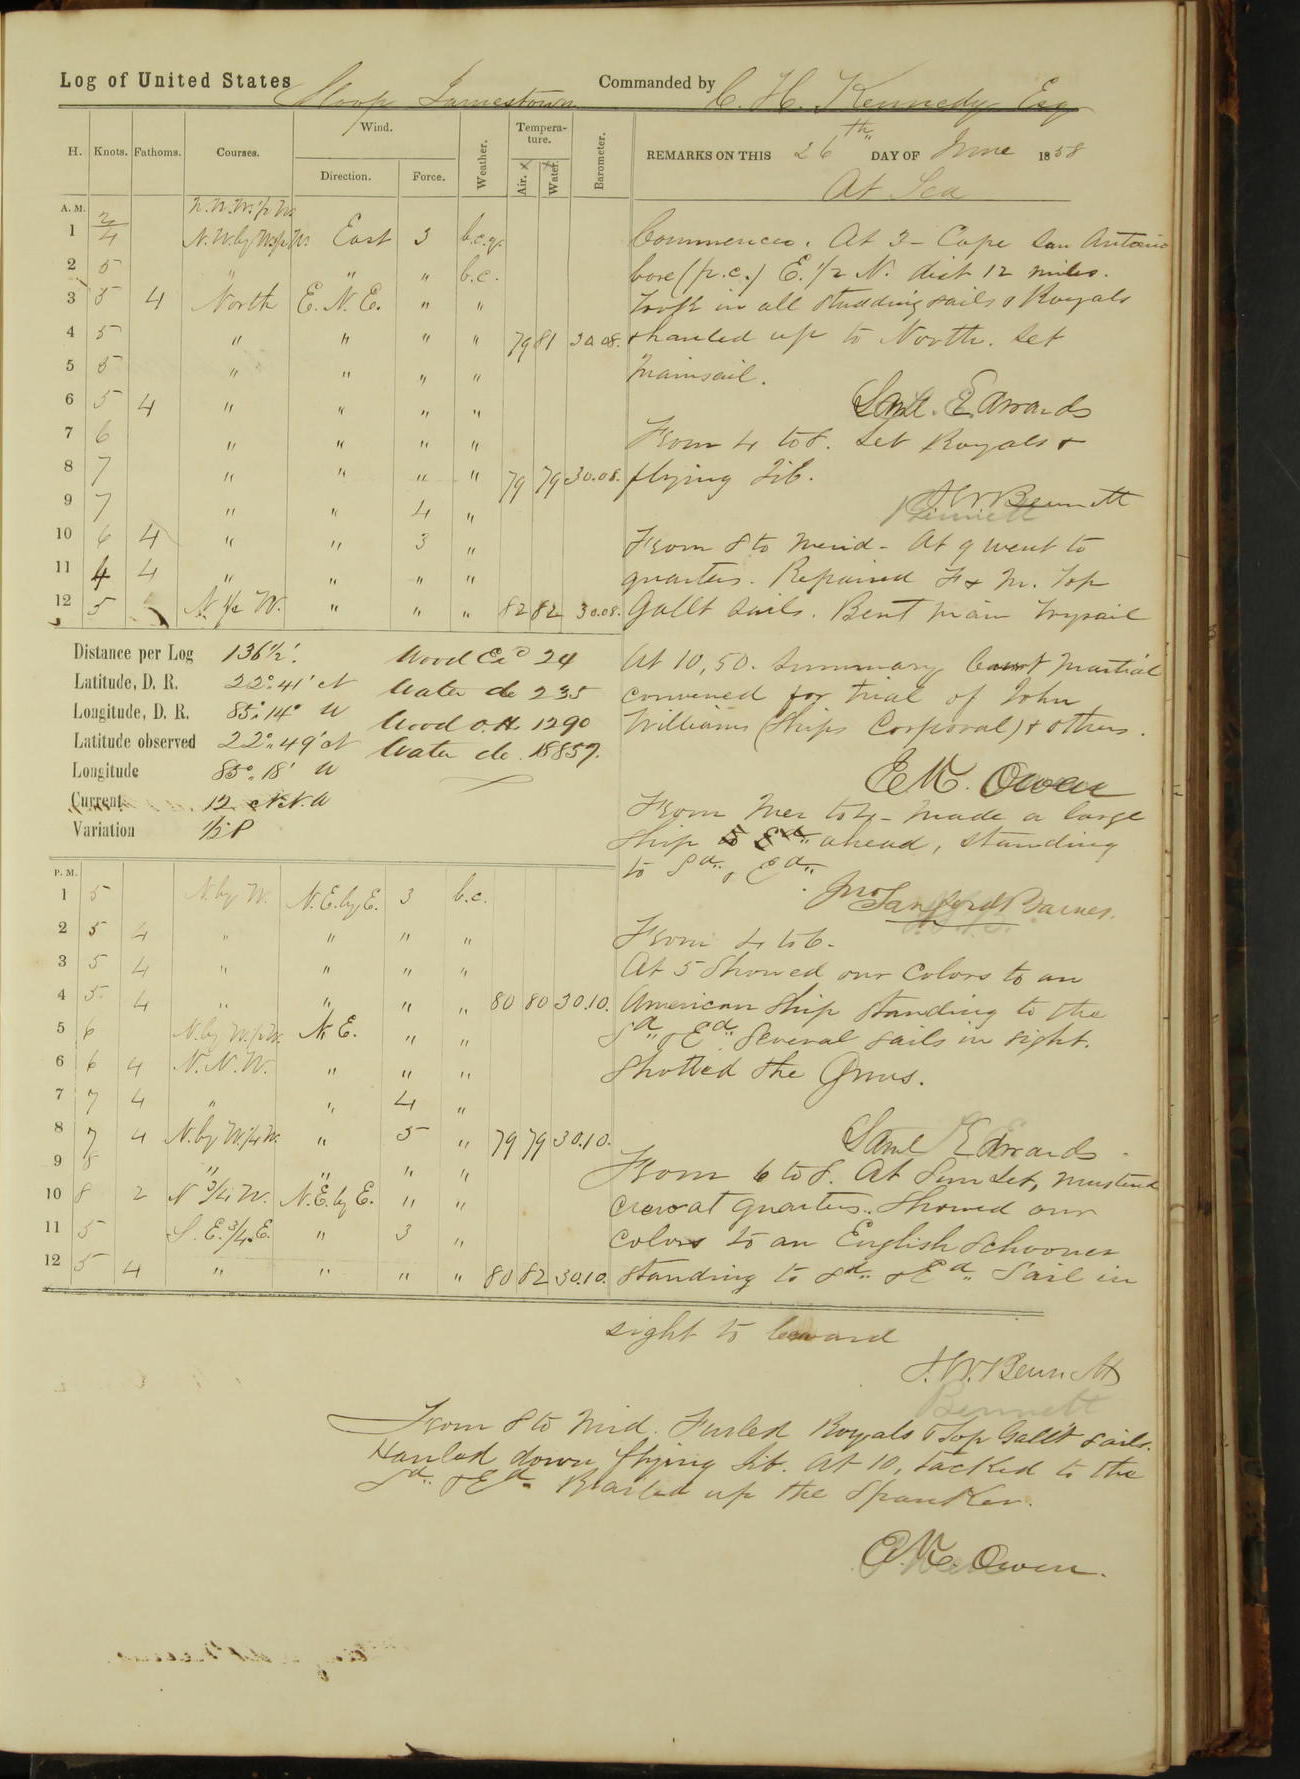 Log of United States Sloop Jamestown Commanded by C. H. Kennedy Esq
H. Knots. Fathoms. Courses. Wind. Direction. Force. Weather. Tempera-ture. Air. Water. Barometer.
REMARKS ON THIS 26th DAY OF June 1858
At Sea
A. M.
N.N.W.½W.
1 2/4 N.W.by W.½W. East 3 b.c.q.
2 5 " " " b.c.
3 5 4 North E. N. E. " "
4 5 " " " " 79 81 30.08.
5 5 " " " "
6 5 4 " " " "
7 6 " " " "
8 7 " " " " 79 79 30.08.
9 7 " " 4 "
10 6 4 " " 3 "
11 4 4 " " " "
12 5 N. ½ W. " " " 82 82 30.08.
Commences. At 3 - Cape San Antonio
bore (p.c.) E. ½ N. dist 12 miles.
Took in all studding sails & Royals
& hauled up to North. Set
Mainsail.
Saml. Edwards
From 4 to 8. Set Royals &
flying Jib.
J.W. Bennett
Bennett
From 8 to Merid - At 9 went to
quarters. Repaired F & M. Top
Gallt Sails. Bent Main Trysail
At 10,50. Summary Court Martial
convened for trial of John
Williams (Ships Corporal) & others.
E K. Owen
Distance per Log 136½'.
Latitude, D. R. 22°. 41' N
Longitude, D. R. 85°. 14' W
Latitude observed 22°. 49' N
Longitude 85°. 18' W
Current 12 N.N.W
Variation ½ P
Wood Exd 24
Water do 235
Wood O.H. 1290
Water do. 18857.
From Mer to 4 - Made a large
Ship ahead, standing
to Sd. & Ed.
Jno Sanford Barnes.
P. M.
1 5 N. by W. N.E. by E. 3 b.c.
2 5 4 " " " "
3 5 4 " " " "
4 5 4 " " " " 80 80 30.10.
5 6 N. by W.½W. N. E. " "
6 6 4 N. N. W. " " "
7 7 4 " " 4 "
8 7 4 N. by W.¼W. " 5 " 79 79 30.10.
9 8 " " " "
10 8 2 N ¾ W. N.E. by E. " "
11 5 S. E. ¾ E. " 3 "
12 5 4 " " " " 80 82 30.10.
From 4 to 6.
At 5 Showed our Colors to an
American Ship standing to the
Sd. & Ed. Several sails in sight.
Shotted the Guns.
Saml Edwards
From 6 to 8. At Sun Set, mustered
crew at quarters. Showed our
colors to an English Schooner
standing to Sd. & Ed. Sail in
sight to leeward
J. W. Bennett
Bennett
From 8 to Mid. Furled Royals & Top Gallt sails.
Hauled down flying Jib. At 10, tacked to the
Sd. & Ed. Brailed up the Spanker.
E. K. Owen.